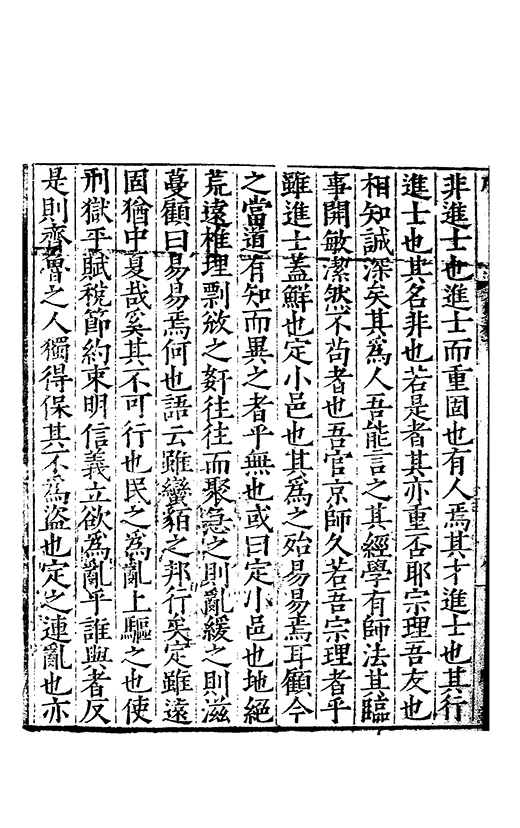 非進士也進士而重固也有人焉其才進士也其行
進士也其名非也若是者其亦重否耶宗理吾友也
相知誠深矣其為人吾能言之其經學有師法其臨
事開敏潔然不苟者也吾官京師久若吾宗理者乎
雖進士蓋鮮也定小邑也其為之殆易易焉耳顧今
之當道有知而異之者乎無也或曰定小邑也地絕
荒遠椎理剽敓之姧往往而聚急之則亂緩之則滋
蔓顧曰易易焉何也語云雖蠻貊之邦行矣定雖遠
固猶中夏哉奚其不可行也民之為亂上驅之也使
刑獄平賦稅節約束明信義立欲為亂乎誰與者反
是則齊魯之人獨得保其不為盜也定之連亂也亦